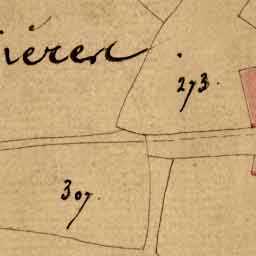 ières
273.
307.